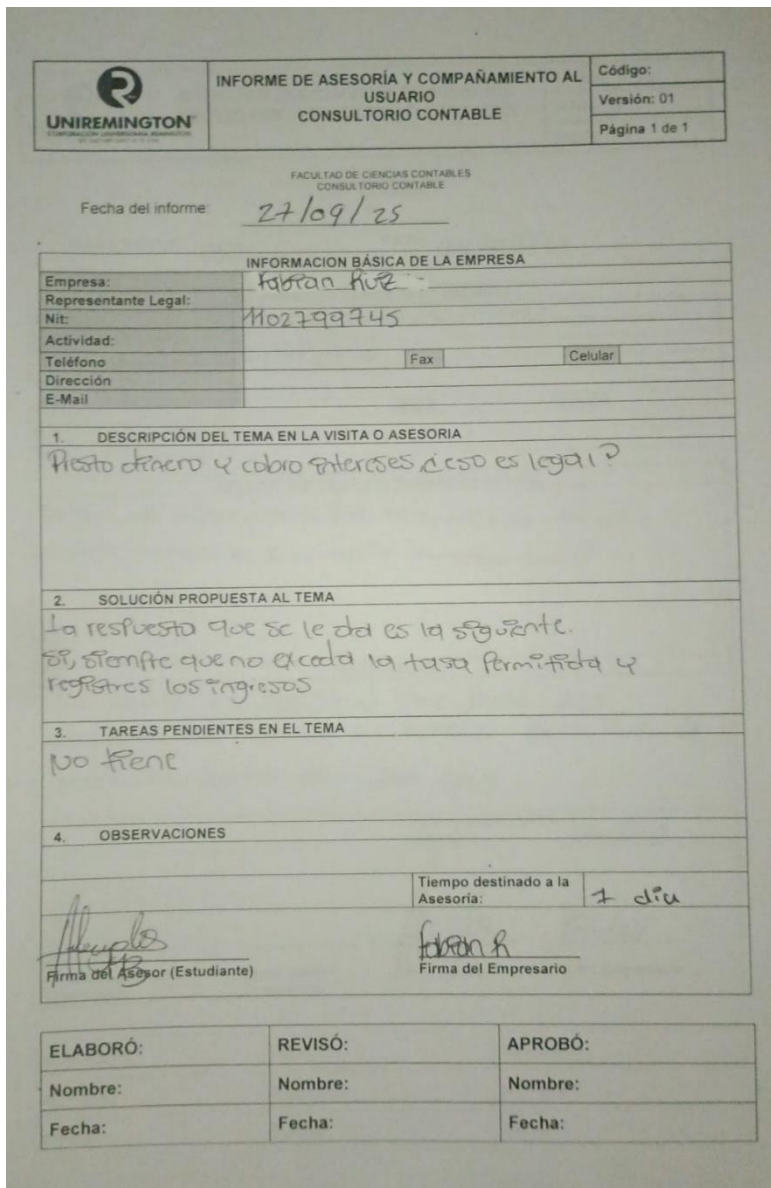 UNIREMINGTON
CORPORACIÓN UNIVERSITARIA REMINGTON
INFORME DE ASESORÍA Y COMPAÑAMIENTO AL
USUARIO
CONSULTORIO CONTABLE
Código:
Versión: 01
Página 1 de 1
FACULTAD DE CIENCIAS CONTABLES
CONSULTORIO CONTABLE
Fecha del informe: 27/09/25
INFORMACION BÁSICA DE LA EMPRESA
Empresa: Fabian Ruiz
Representante Legal:
Nit: 1102799745
Actividad:
Teléfono Fax Celular
Dirección
E-Mail
1. DESCRIPCIÓN DEL TEMA EN LA VISITA O ASESORIA
Presto dinero y cobro intereses ¿eso es legal?
2. SOLUCIÓN PROPUESTA AL TEMA
La respuesto que se le da es la siguiente.
Si, siempre que no exceda la tasa permitida y
registres los ingresos
3. TAREAS PENDIENTES EN EL TEMA
No tiene
4. OBSERVACIONES
Tiempo destinado a la
Asesoría: 1 dia
Fabian R
Firma del Asesor (Estudiante) Firma del Empresario
ELABORÓ: REVISÓ: APROBÓ:
Nombre: Nombre: Nombre:
Fecha: Fecha: Fecha: